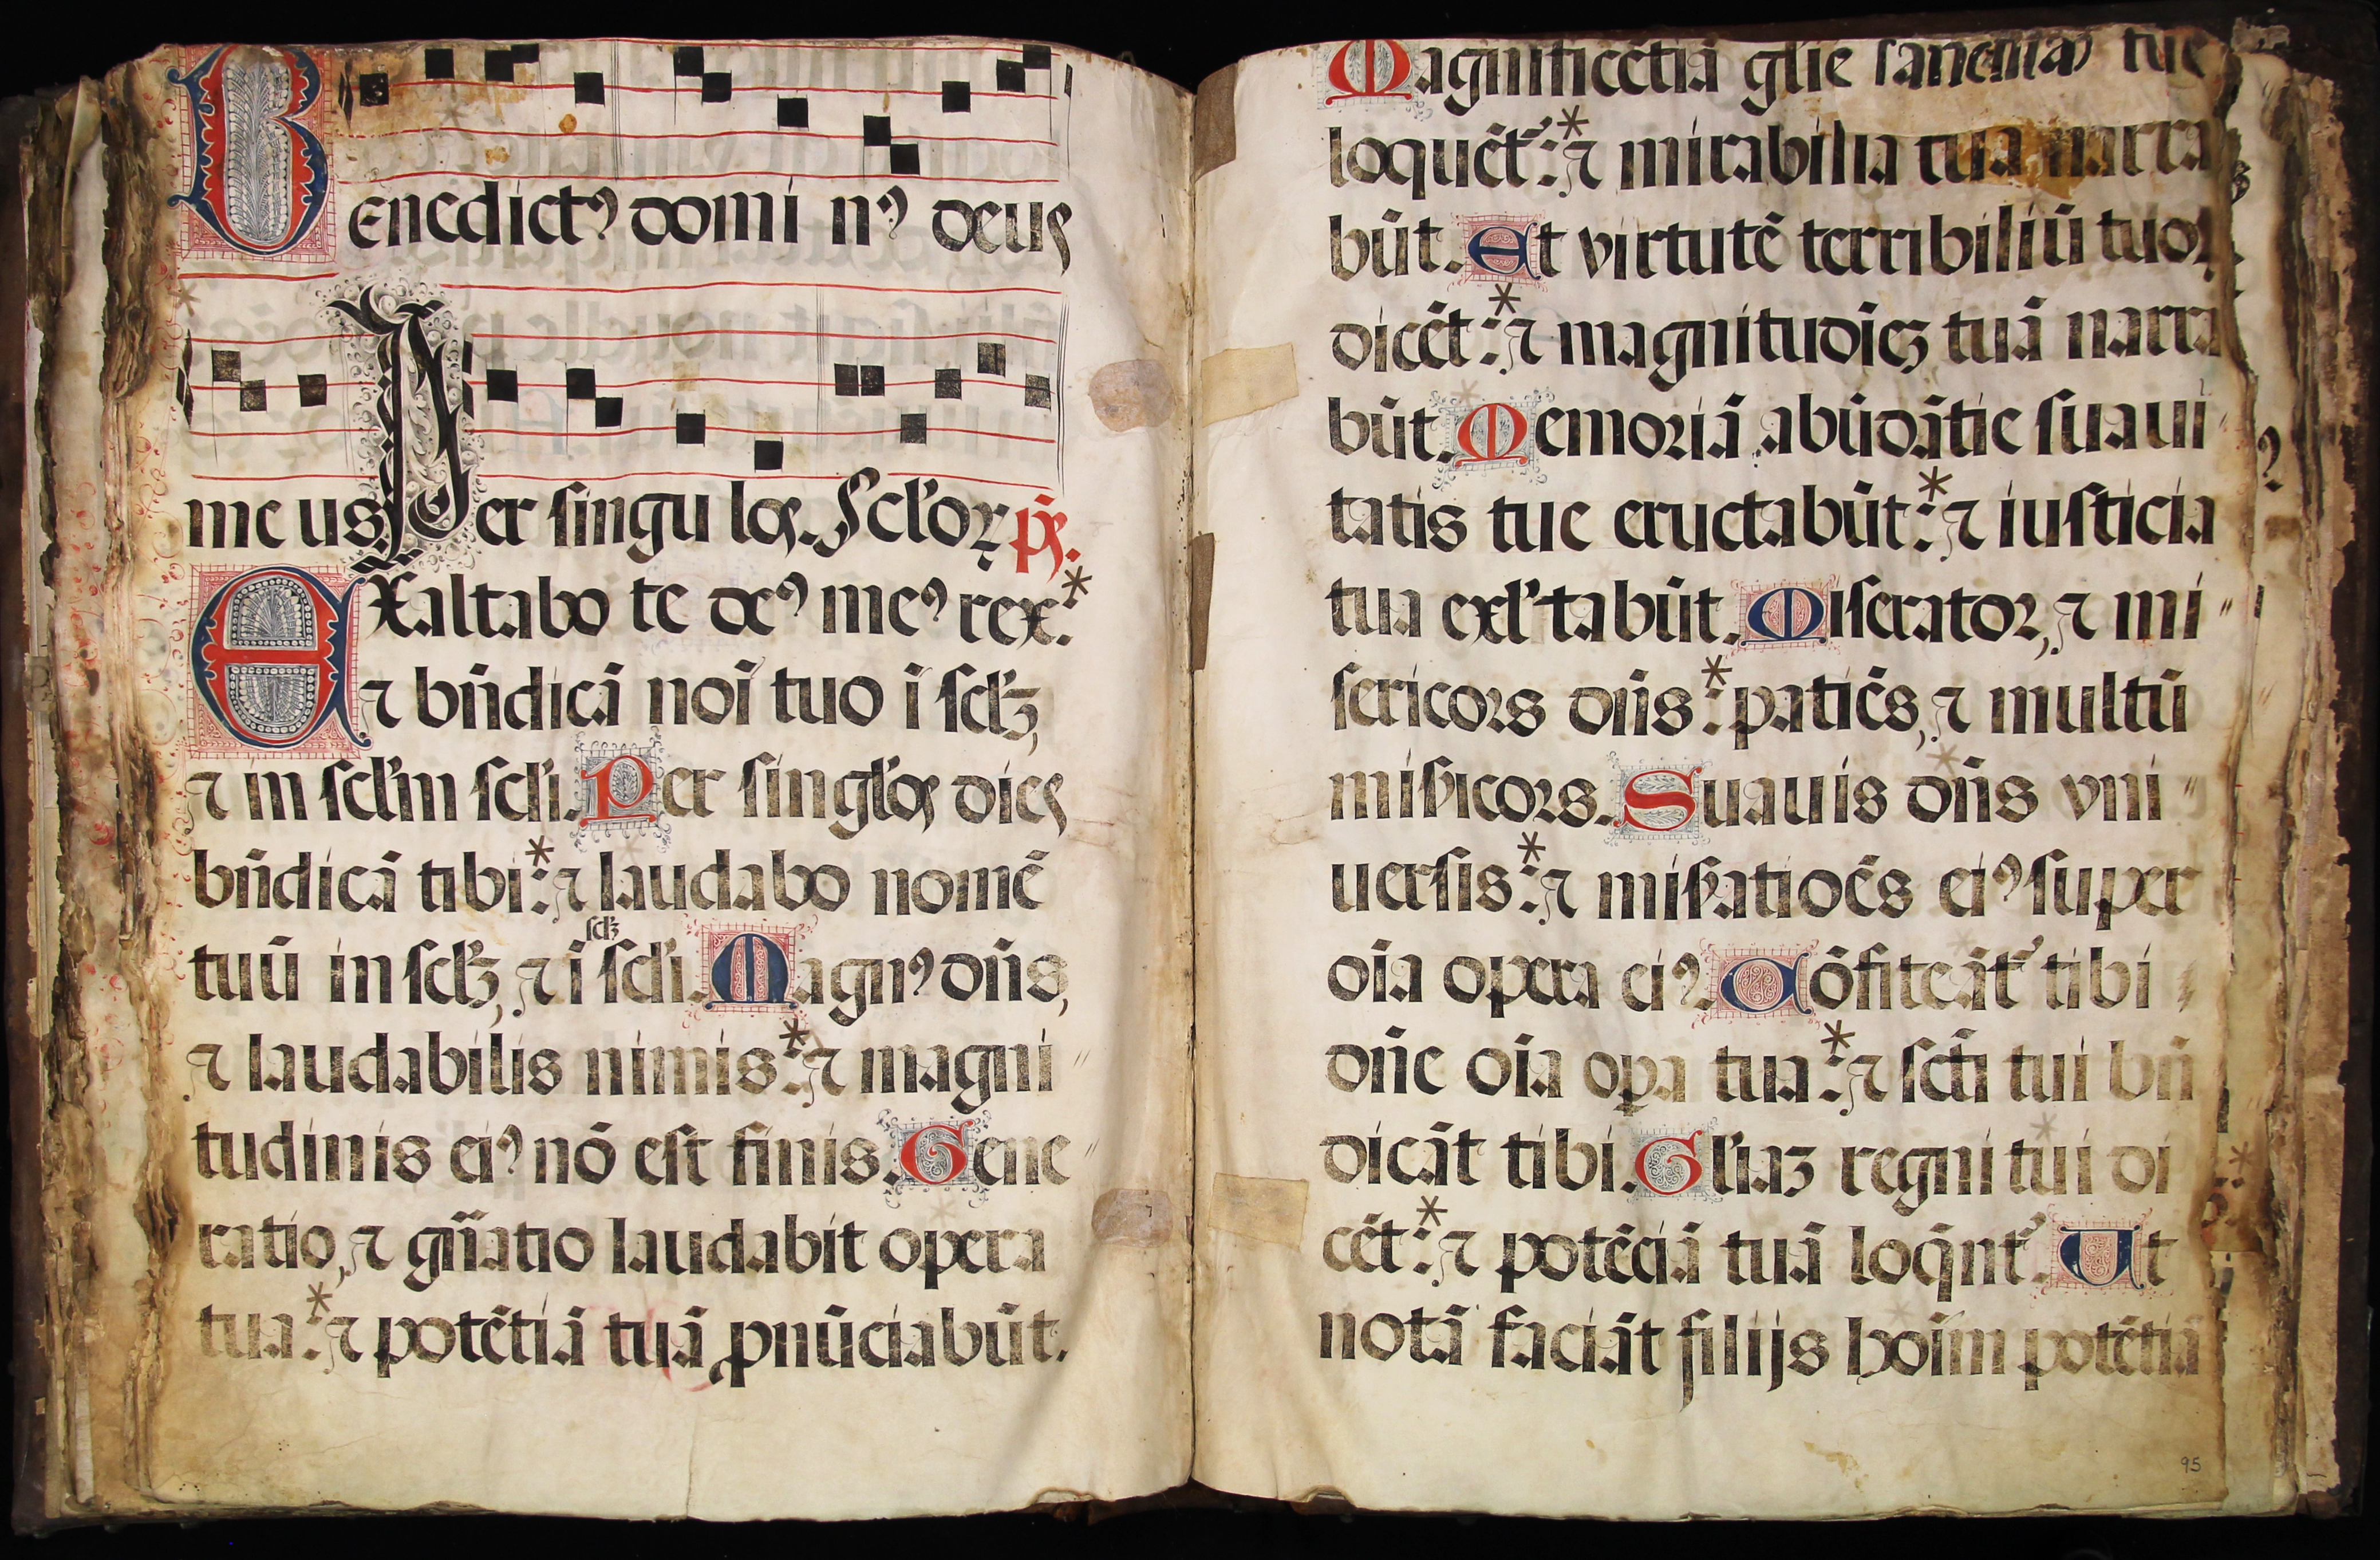 Benedictꝰ domi nꝰ deus
me us Per singu los. Scl'oꝝ ps.
Exaltabo te deꝰ meꝰ rex: *
⁊ bn̄dicā noī tuo ī scl'ꝫ,
⁊ in scl'm scl'i. Per singl'os dies
bn̄dicā tibi: * ⁊ laudabo nomē
scl'ꝫ
tuū in scl'ꝫ, ⁊ ī scl'i. Magnꝰ dn̄s,
⁊ laudabilis nimis: * ⁊ magni〃
tudinis eiꝰ nō est finis. Gene〃
ratio, ⁊ gn̄atio laudabit opera
tua: * ⁊ potētiā tuā ꝓnūciabūt.
Magnificētiā gl'ie sanctita) tue
loquēt᷑: * ⁊ mirabilia tua narra
būt. Et virtutē terribiliū tuoꝝ
dicēt: * ⁊ magnitudīeꝫ tuā narra
būt. Memoriā abūdātie suaui
tatis tue eructabūt: * ⁊ iusticia
tua exl'tabūt. Miserator, ⁊ mi〃
sericors dn̄s: * patiēs, ⁊ multū
mis̄icors. Suauis dn̄s vni〃
uersis: * ⁊ mis̄atioēs eiꝰ super
oīa opera eiꝰ. Cōfiteāt᷑ tibi
dn̄e oīa oꝑa tua: * ⁊ scti tui bn̄
dicāt tibi. Gl'iaꝫ regni tui di
cēt: * ⁊ potēciā tuā loq̄nt᷑. Ut
notā faciāt filijs hoīm potētiā
95